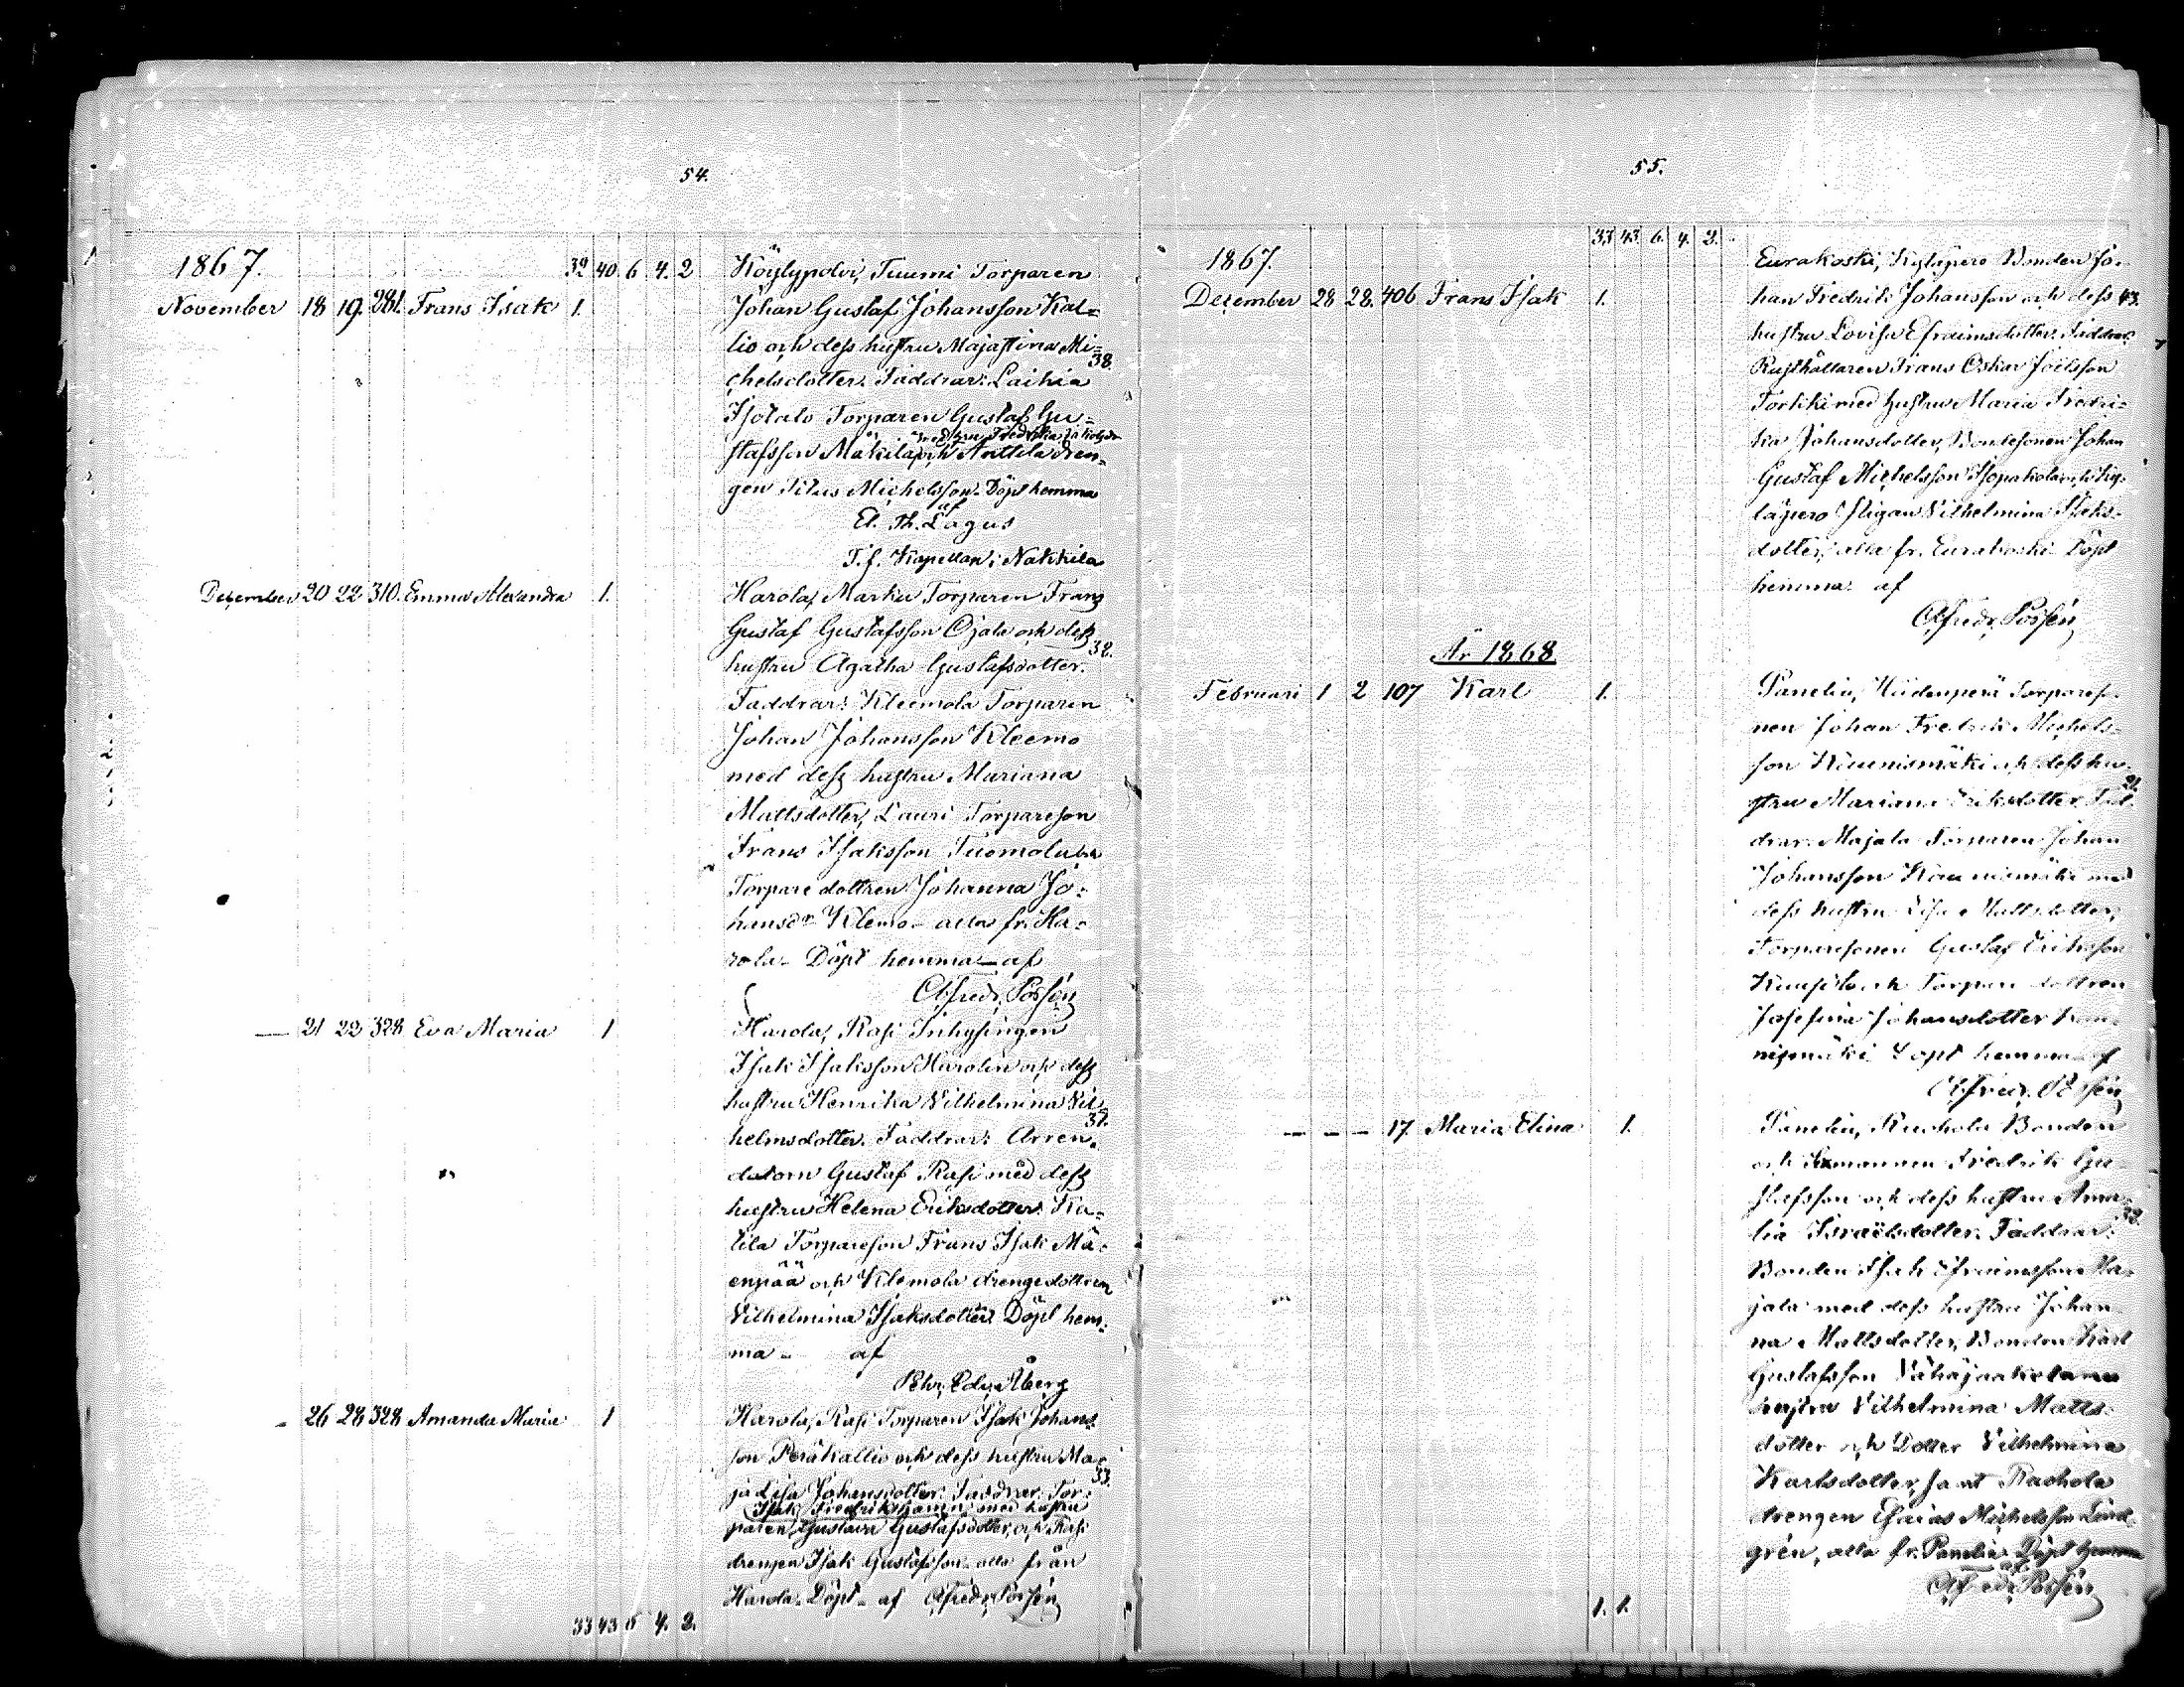 54.
1867. 32 40 6 4. 2 Köylypolvi, Tuumi Torparen
November 18 19. 281. Frans Isak 1. Johan Gustaf Johansson Kal=
lio och dess hustru Majastina Mi=
38.
chelsdotter. Faddrar: Laihia
Isotalo Torparen Gustaf Gu=
med hustru Fredrika
stafsson Mäkilä och Anttila dren=
gen Titus Michelsson. Döpt hemma
af
El. Th. Lagus
T. f. Kapellan i Nakkila
December 20 22 310. Emma Alexandra 1. Harola, Marku Torparen Frans
Gustaf Gustafsson Ojala och dess
32.
hustru Agatha Gustafsdotter.
Faddrar: Kleemola Torparen
Johan Johansson Kleemo
med dess hustru Mariana
Mattsdotter, Lauri Torpareson
Frans Isaksson Tuomola och
Torpare dottren Johanna Jo=
hansdr Klemo - alla fr. Ha=
rola - Döpt hemma - af
Alfredr. Forsén
— 21 22 328 Eva Maria 1 Harola, Rasi Inhysingen
Isak Isaksson Harolin och dess
hustru Henrika Vilhelmina Vil=
37.
helmsdotter. Faddrar: Arren=
datorn Gustaf Rasi med dess
hustru Helena Eriksdotter. Ka=
tila Torpareson Frans Isak Mä=
enpää och Klemola drengedottren
Vilhelmina Isaksdotter. Döpt hem=
ma - af
Pehr Edv. Åberg
- 26 28 328 Amanda Maria 1 Harola, Rasi Torparen Isak Johans=
son Peräkallio och dess hustru Ma=
33.
ja Lisa Johansdotter. Faddrar: Tor=
Isak Fredriksson med hustru
paren Gustava Gustafsdotter, och Rasi
drengen Isak Gustafsson - alla från
Harola. Döpt - af Alfredr. Forsén
33 43 6 4. 2.
55.
33 43. 6. 4. 2.
1867. Eurakoski, Kyläpero Bonden Jo=
December 28 28. 406 Frans Isak 1. han Fredrik Johansson och dess 43.
hustru Lovisa Efraimsdotter. Faddrar:
Rusthållaren Frans Oskar Joelsson
Torkki med hustru Maria Fredri=
ka Johansdotter, Bondesonen Johan
Gustaf Michelsson och Ky=
läpero Pigan Vilhelmina Isaks=
dotter, alla fr. Eurakoski. Döpt
hemma af
Alfredr. Forsén
År 1868
Februari 1 2 107 Karl 1. Panelia, Hiidenperä Torpareso=
nen Johan Fredrik Michels=
son Kaunismäki och dess hu=
21.
stru Mariana Eriksdotter. Fad=
drar: Majala Torparen Johan
Johansson Kaunismäki med
dess hustru Lisa Mattsdotter,
Torparesonen Gustaf Eriksson
och Torpare dottren
Josefina Johansdotter Kau=
nismäki. Döpt hemma af
Alfredr. Forsén
— — — 17. Maria Elina 1. Panelia, Ruohola Bonden
och Sexmannen Fredrik Gu=
stafsson och dess hustru Ama=
32.
lia Israëlsdotter. Faddrar:
Bonden Isak Efraimsson Ma=
jala med dess hustru Johan=
na Mattsdotter, Bonden Karl
Gustafsson Vähäjaakola med
hustru Vilhelmina Matts=
dotter och Dotter Vilhelmina
Karlsdotter, samt Ruohola
drengen Esaias Michelsson Lind=
grén, alla fr. Panelia. Döpt hemma
af
Alfredr. Forsén
1. 1.